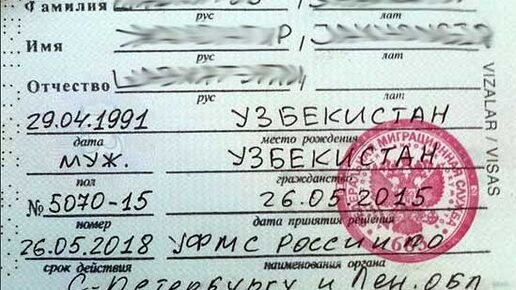 Фамилия
рус лат
Имя
рус лат
Отчество
рус лат
29.04.1991 УЗБЕКИСТАН
дата место рождения
МУЖ. УЗБЕКИСТАН
пол гражданство
№ 5070-15 26.05.2015
номер дата принятия решения
26.05.2018 УФМС РОССИИ ПО
срок действия наименование органа
С-Петербургу и Лен.обл
VIZALAR / VISAS
МИГРАЦИОННАЯ СЛУЖБА